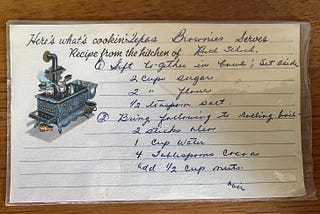 Here's what's cookin' Texas Brownies Serves
Recipe from the kitchen of
① Sift together in bowl; Set aside
2 Cups sugar
2 " flour
1/2 teaspoon salt.
② Bring following to rolling boil
2 sticks oleo
1 Cup water
4 Tablespoons Cocoa
add 1/2 cup nuts.
over